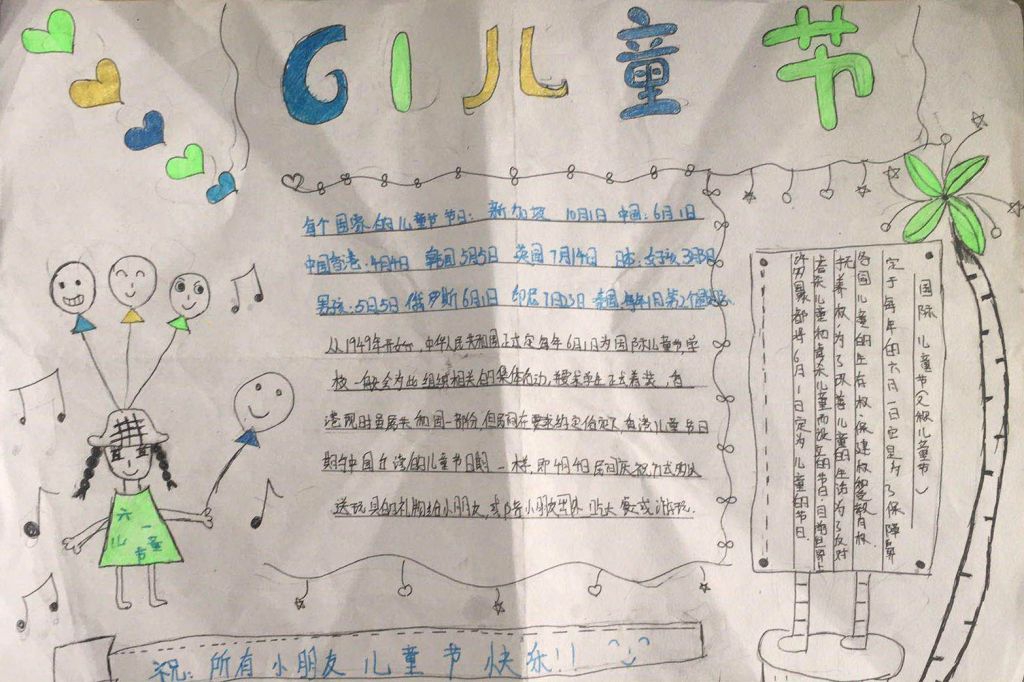 61儿童节
每个国家的儿童节节日：新加坡 10月1日 中国：6月1日
中国香港：4月4日 韩国5月5日 英国7月14日 日本：女孩3月3日
男孩：5月5日 俄罗斯6月1日 印尼7月23日 泰国每年1月第2个
从1949年开始，中华人民共和国正式定每年6月1日为国际儿童节，学
校一般会为此组织相关的集体活动，要求学生正式着装，
一部分，
中国 的儿童节日期一样，即4月4日
送玩具的礼物给小朋友，或
国际儿童节（又称儿童节）
定于每年的六月一日它是为了保障
各国儿童的生存权保健权和受教育权
抚养权为了改善儿童的生活为了反对
杀儿童和毒杀儿童而设立的节日。目前世界上
许多国家都将6月1日定为儿童的节日.
六一
儿童
节
祝：所有小朋友儿童节快乐!!